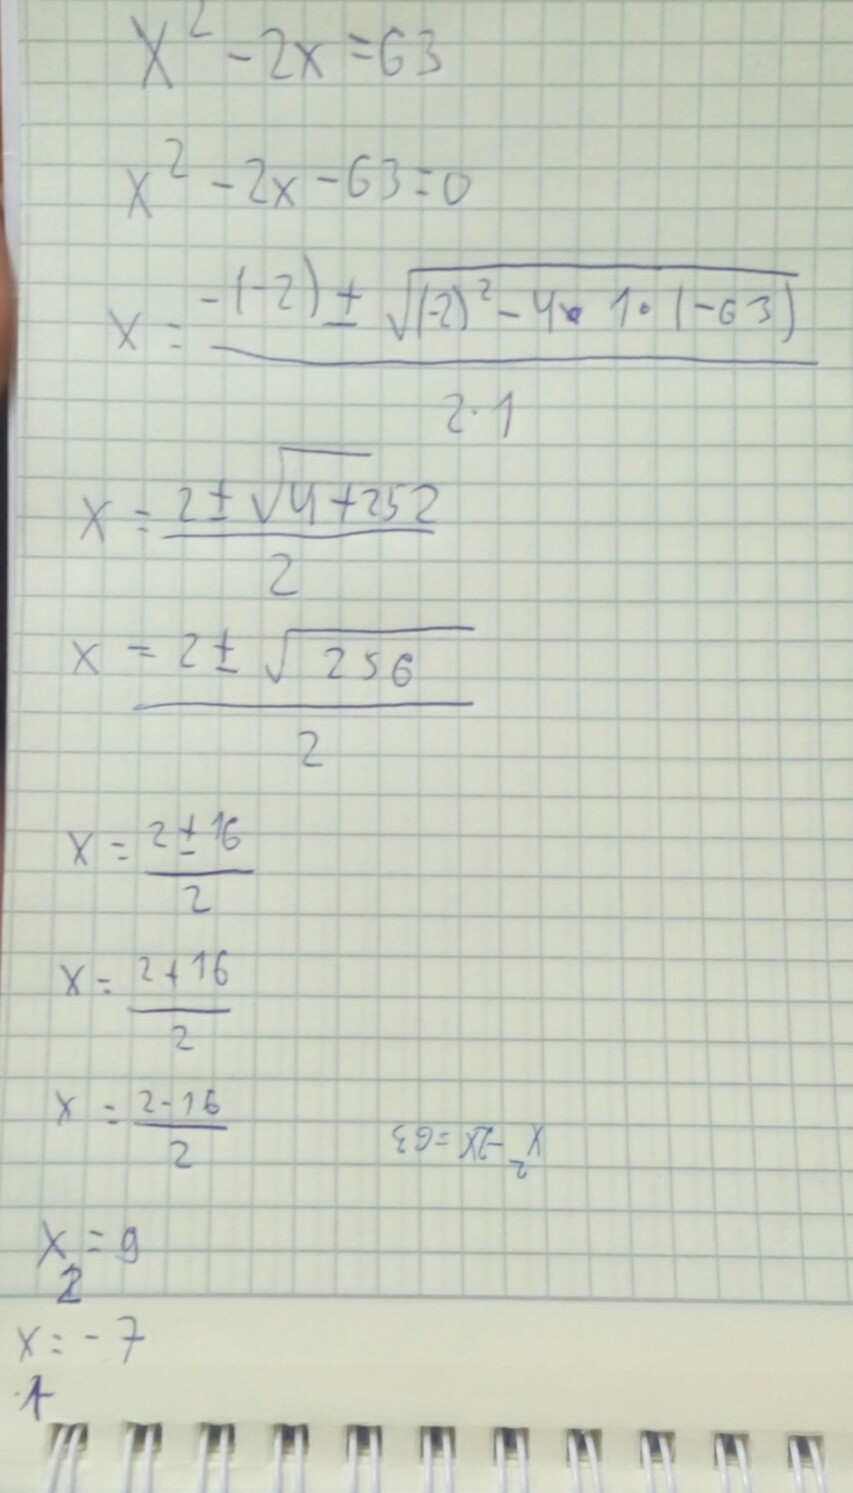 x² - 2x = 63
x² - 2x - 63 = 0
x = (-(-2) ± √((-2)² - 4 · 1 · (-63))) / (2 · 1)
x = (2 ± √4 + 252) / 2
x = (2 ± √256) / 2
x = (2 ± 16) / 2
x = (2 + 16) / 2
x = (2 - 16) / 2
x² - 2x = 63
x₂ = 9
x₁ = -7